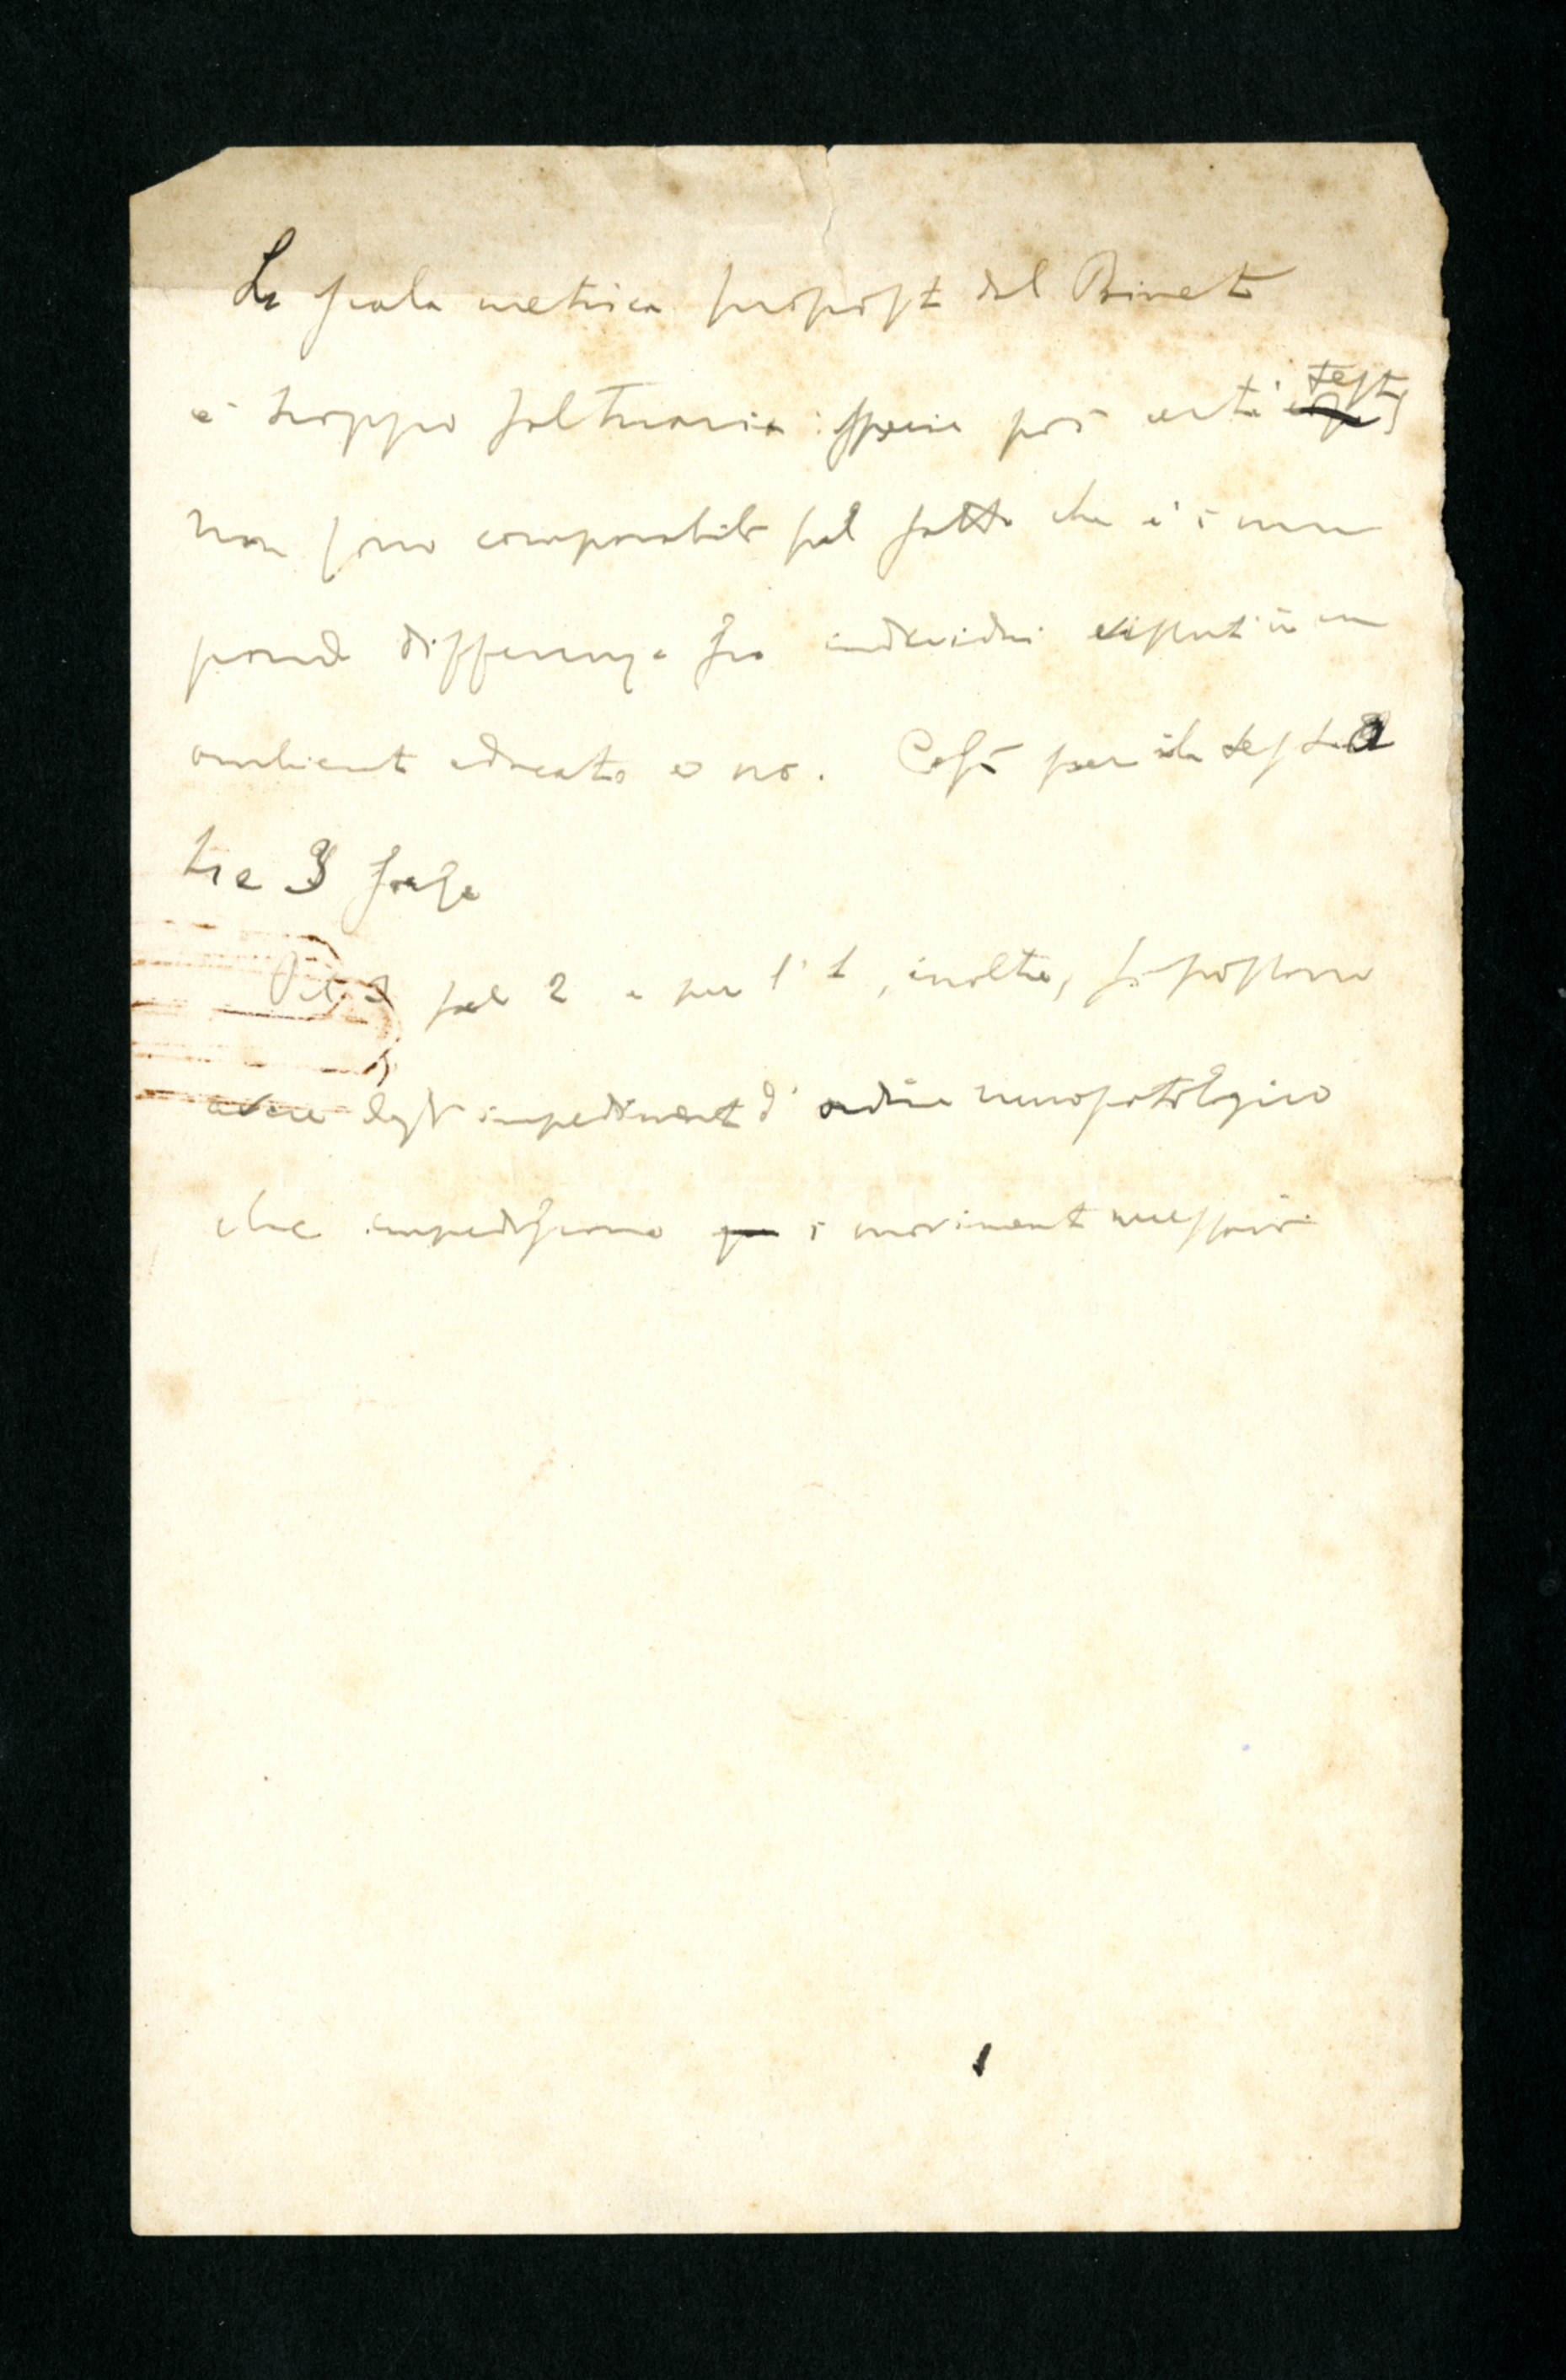 La scala metrica propost dal Binet
è troppo saltuaria : specie poi certi test
non sono comparabili pel fatto che c'è una
grande differenza fra individui vissuti in un
ambiente educato o no. Così per il test a
tre 3 frasi
pel 2 e per l' 1, inoltre, si possono
avere degli impedimenti d' ordine neuropatologico
che impediscono i movimenti necessari